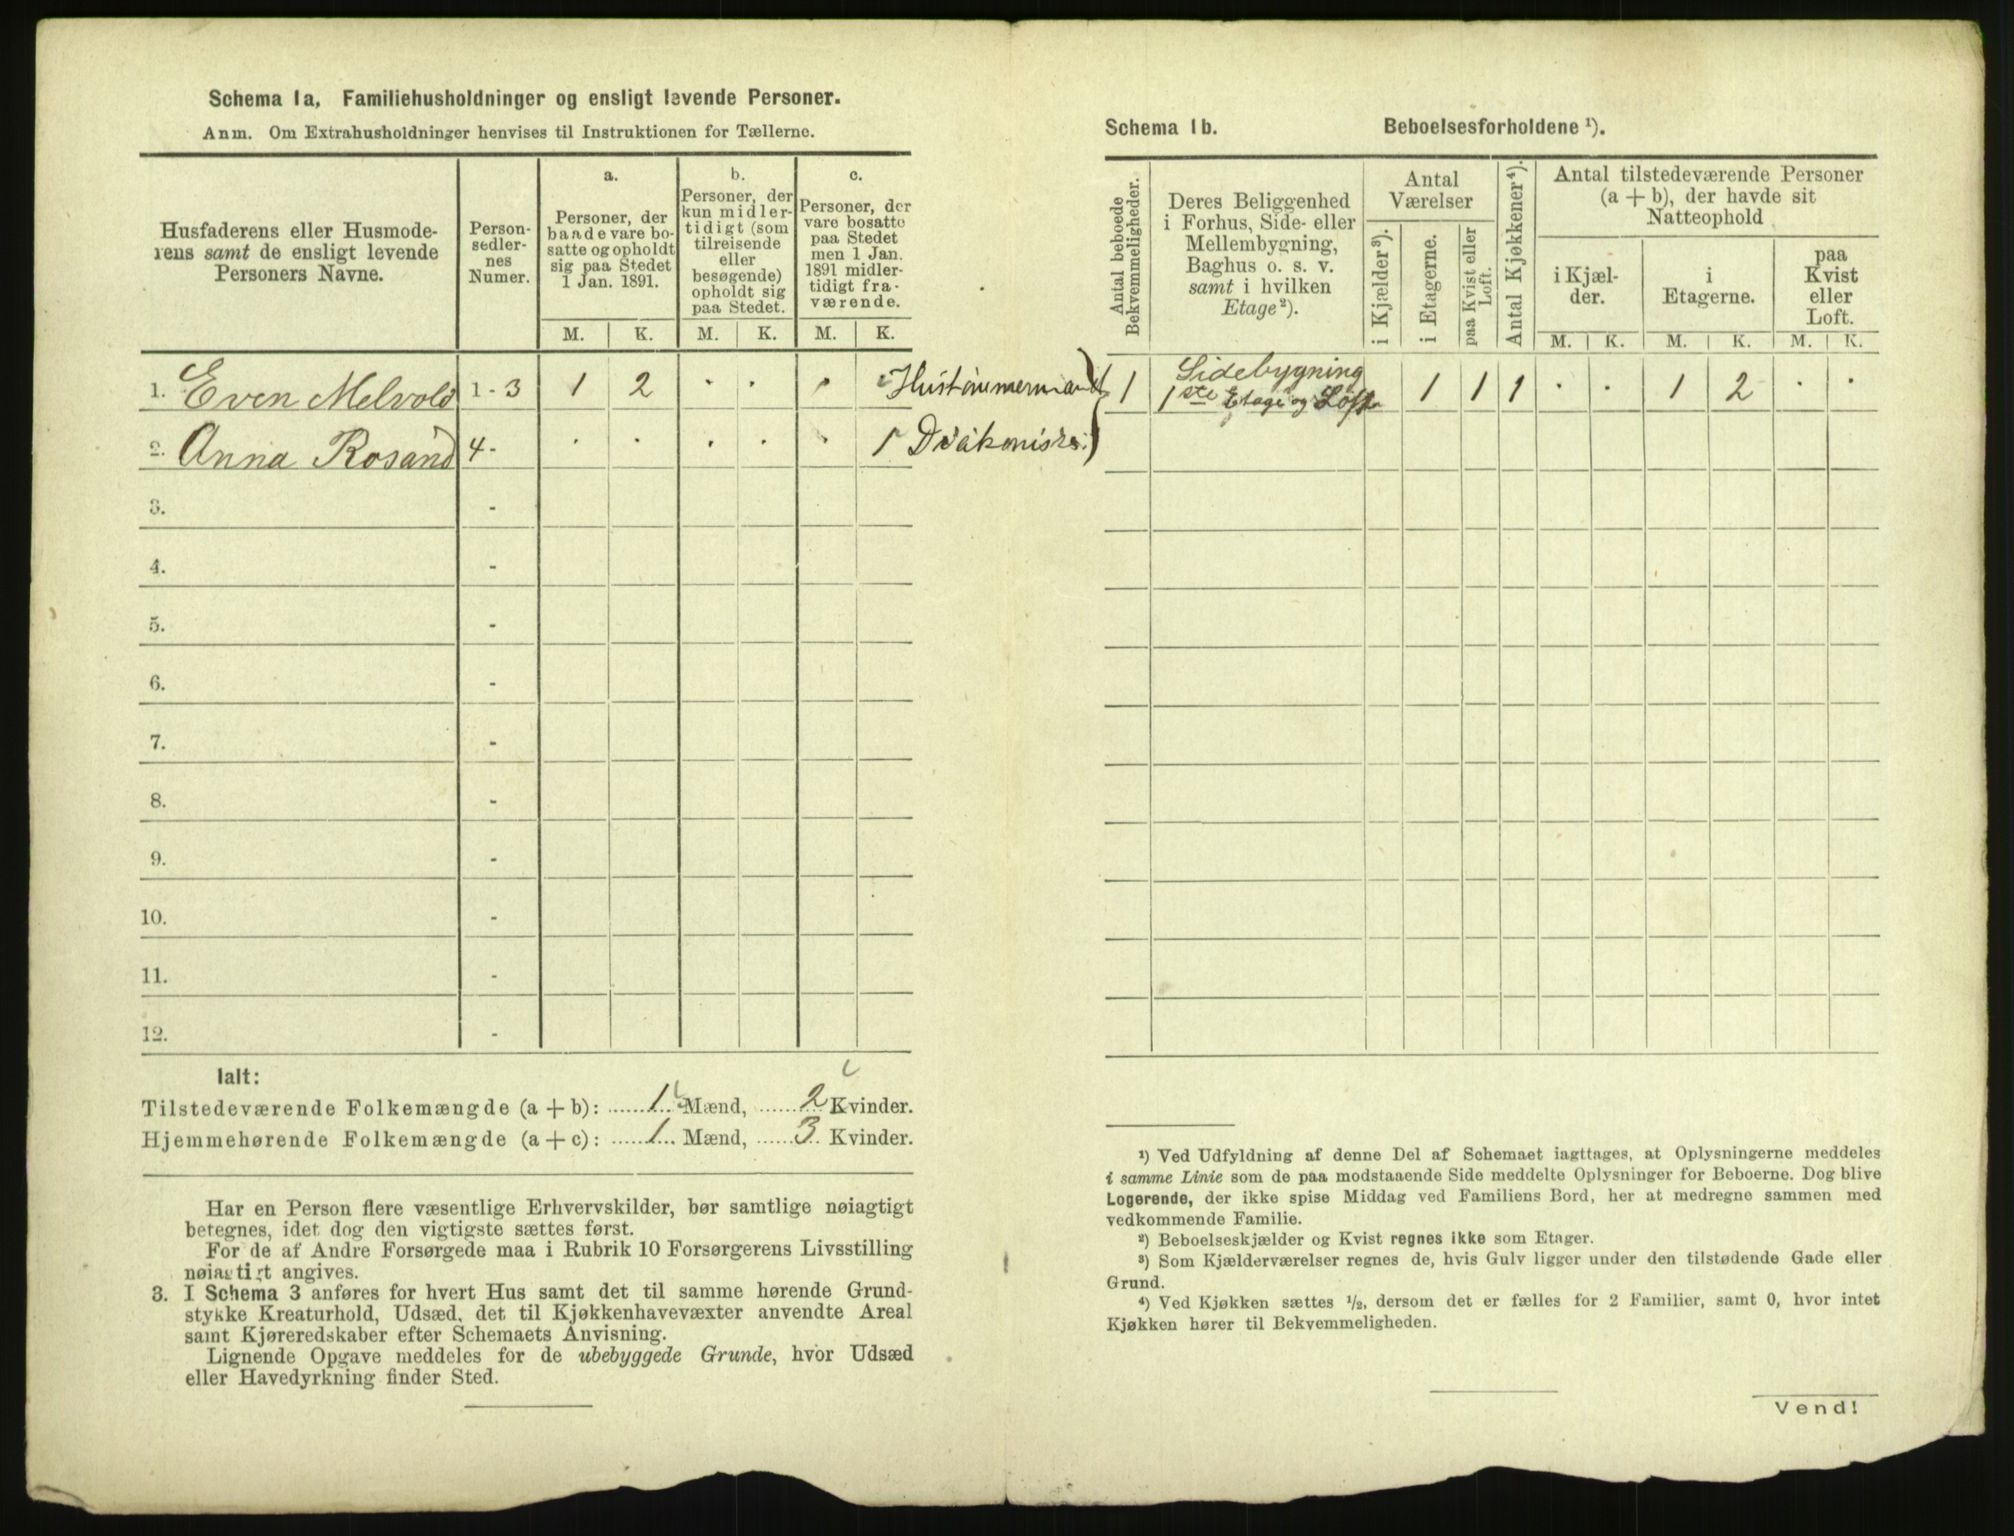 Schema 1a. Familiehusholdninger og ensligt levende Personer.
Anm. Om Extrahusholdninger henvises til Instruktionen for Tællerne.
Husfaderens eller Husmode-
rens samt de ensligt levende
Personers Navne.
Person-
sedler-
nes
Numer.
a.
Personer, der
baade vare bo-
satte og opholdt
sig paa Stedet
1 Jan. 1891.
b.
Personer, der
kun midler-
tidigt (som
tilreisende
eller
besøgende)
opholdt sig
paa Stedet.
c.
Personer, der
vare bosatte
paa Stedet
men 1 Jan.
1891 midler-
tidigt fra-
værende.
M. K. M. K. M. K.
1. Even Melvold 1 - 3 1 2 · · · Hustømermand
2. Anna Rosand 4 - · · · · · 1 Diakonisse
3. -
4. -
5. -
6. -
7. -
8. -
9. -
10. -
11. -
12. -
Ialt:
Tilstedeværende Folkemængde (a + b): 1 Mænd, 2 Kvinder.
Hjemmehørende Folkemængde (a + c): 1 Mænd, 3 Kvinder.
Har en Person flere væsentlige Erhvervskilder, bør samtlige nøiagtigt
betegnes, idet dog den vigtigste sættes først.
For de af Andre Forsørgede maa i Rubrik 10 Forsørgerens Livsstilling
nøiagtigt angives.
3. I Schema 3 anføres for hvert Hus samt det til samme hørende Grund-
stykke Kreaturhold, Udsæd, det til Kjøkkenhavevæxter anvendte Areal
samt Kjøreredskaber efter Schemaets Anvisning.
Lignende Opgave meddeles for de ubebyggede Grunde, hvor Udsæd
eller Havedyrkning finder Sted.
Schema 1b. Beboelsesforholdene ¹).
Antal beboede
Bekvemmeligheder.
Deres Beliggenhed
i Forhus, Side- eller
Mellembygning,
Baghus o. s. v.
samt i hvilken
Etage²).
Antal
Værelser
i Kjælder³).
i Etagerne.
paa Kvist eller
Loft.
Antal Kjøkkener⁴).
Antal tilstedeværende Personer
(a + b), der havde sit
Natteophold
i Kjæl-
der.
i
Etagerne.
paa
Kvist
eller
Loft.
M. K. M. K. M. K.
1 Sidebygning
1ste Etage og Loft 1 1 1 · · 1 2 · ·
¹) Ved Udfyldning af denne Del af Schemaet iagttages, at Oplysningerne meddeles
i samme Linie som de paa modstaaende Side meddelte Oplysninger for Beboerne. Dog blive
Logerende, der ikke spise Middag ved Familiens Bord, her at medregne sammen med
vedkommende Familie.
²) Beboelseskjælder og Kvist regnes ikke som Etager.
³) Som Kjælderværelser regnes de, hvis Gulv ligger under den tilstødende Gade eller
Grund.
⁴) Ved Kjøkken sættes ½, dersom det er fælles for 2 Familier, samt 0, hvor intet
Kjøkken hører til Bekvemmeligheden.
Vend!